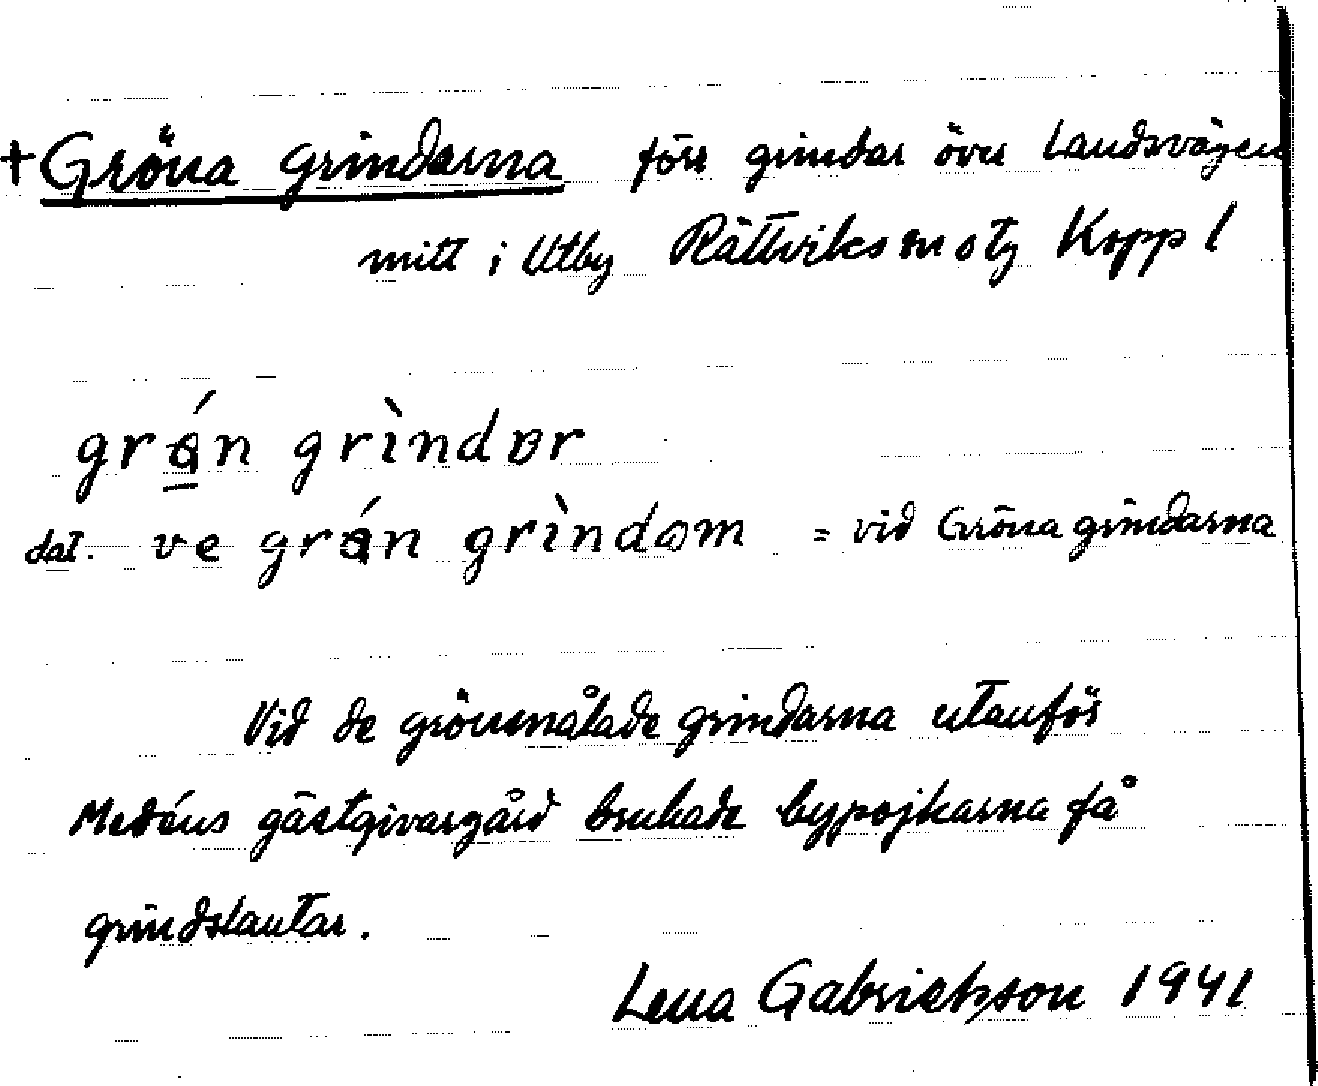 † Gröna grindarna förr grindar över landsvägen
mitt i Utby Rättviks sn o tg Kopp l
grǿn grìndɐr
dat. ve grǿn grìndom = vid Gröna grindarna
Vid de grönmålade grindarna utanför
Medéns gästgivargård brukade bypojkarna få
grindslantar.
Lena Gabrielsson 1941